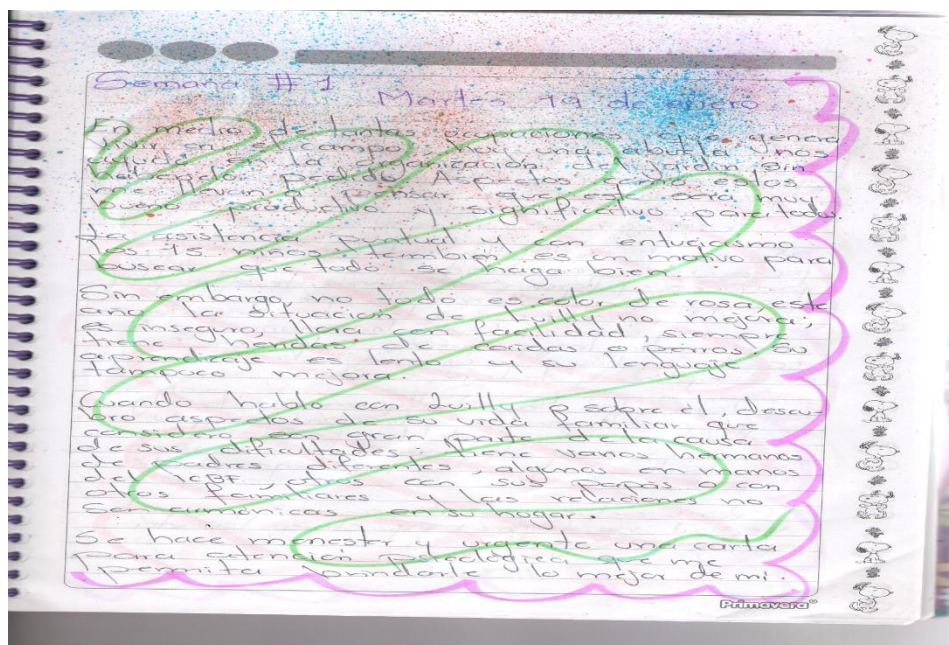 Semana #1 Martes 19 de enero
En medio de tantas ocupaciones que genera
vivir en el campo, hay una abuela nos
ayuda en la organización del jardín sin
pedido. Aspectos como estos
me llevan a pensar que este será muy
bueno, productivo y significativo para todos.
La asistencia puntual y con entuciasmo
de los 15 niños también es un motivo para
buscar que todo se haga bien.
Sin embargo, no todo es color de rosa, este
año la situación de Luilly no mejora;
es inseguro, llora con facilidad, siempre
tiene heridas de caidas o perros. Su
aprendizaje es lento y su lenguaje
tampoco mejora.
Cuando hablo con Luilly o sobre él, descu-
bro aspectos de su vida familiar que
considero son gran parte de la causa
de sus dificultades. Tiene varios hermanos
de padres diferentes, algunos en manos
del ICBF, otros con sus papás o con
otros familiares y las relaciones no
son armónicas en su hogar.
Se hace menester y urgente una carta
para atención que me
permita brindarle lo mejor de mi.
Primavera®